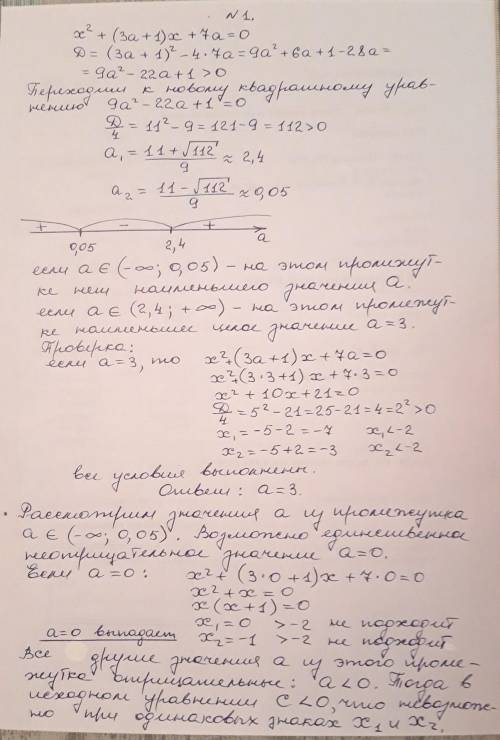 №1.
x² + (3a+1)x + 7a = 0
D = (3a+1)² - 4·7a = 9a² + 6a + 1 - 28a =
= 9a² - 22a + 1 > 0
Переходим к новому квадратному урав-
нению 9a² - 22a + 1 = 0
D/4 = 11² - 9 = 121 - 9 = 112 > 0
a₁ = (11 + √112)/9 ≈ 2,4
a₂ = (11 - √112)/9 ≈ 0,05
+ - +
0,05 2,4 a
если a ∈ (-∞; 0,05) - на этом промежут-
ке нет наименьшего значения a.
если a ∈ (2,4; +∞) - на этом промежут-
ке наименьшее целое значение a = 3.
Проверка:
если a = 3, то x² + (3a+1)x + 7a = 0
x² + (3·3+1)x + 7·3 = 0
x² + 10x + 21 = 0
D/4 = 5² - 21 = 25 - 21 = 4 = 2² > 0
x₁ = -5 - 2 = -7 x₁ < -2
x₂ = -5 + 2 = -3 x₂ < -2
все условия выполнены.
Ответ: a = 3.
• Рассмотрим значения a из промежутка
a ∈ (-∞; 0,05). Возможно единственное
неотрицательное значение a = 0.
Если a = 0: x² + (3·0+1)x + 7·0 = 0
x² + x = 0
x(x+1) = 0
x₁ = 0 > -2 не подходит
a = 0 выпадает x₂ = -1 > -2 не подходит
Все другие значения a из этого проме-
жутка отрицательные: a < 0. Тогда в
исходном уравнении C < 0, что невозмож-
но при одинаковых знаках x₁ и x₂.